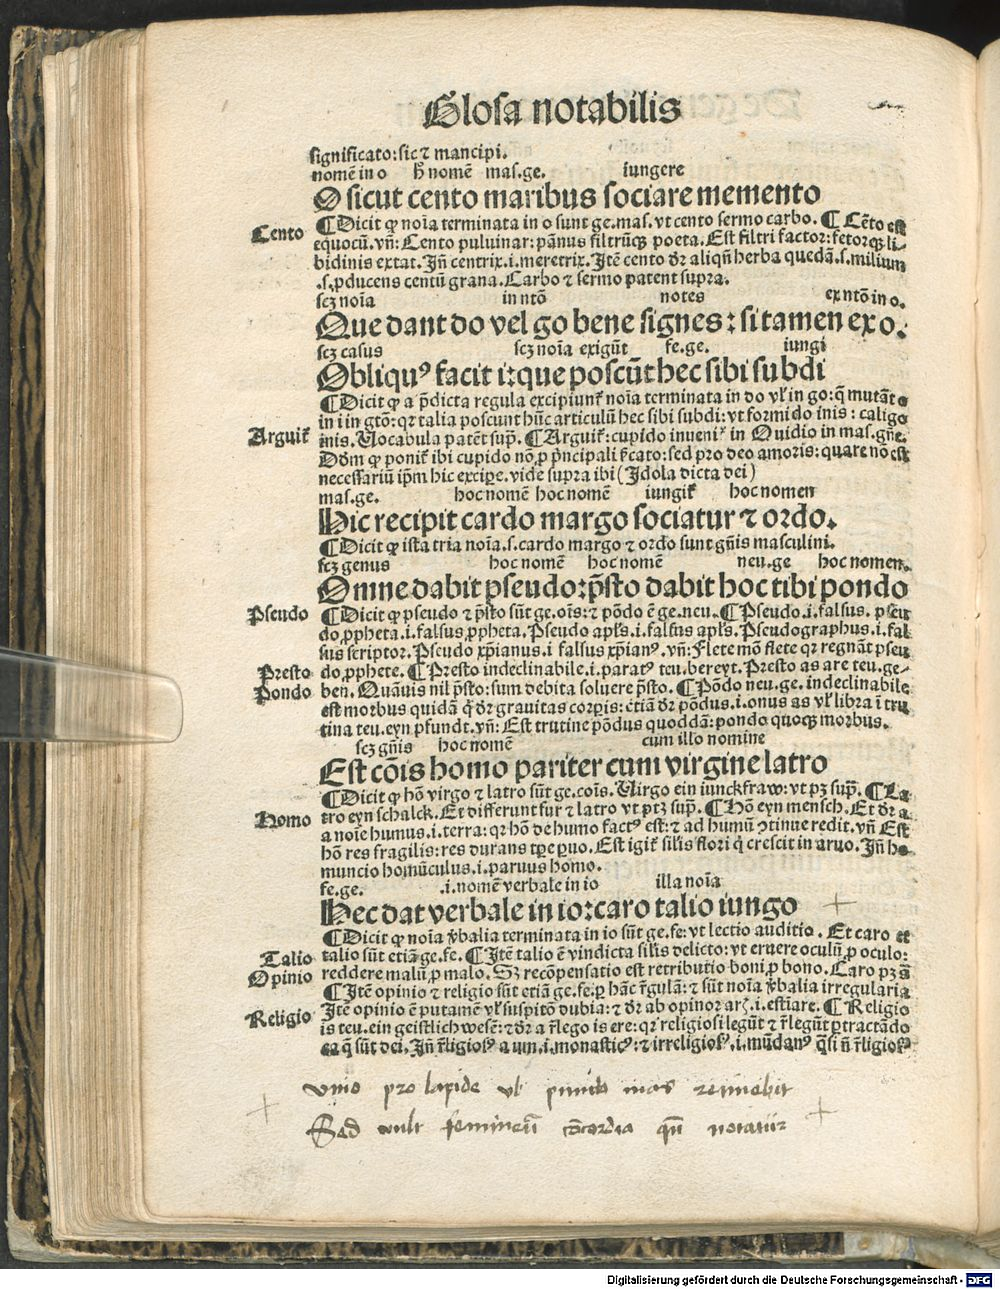 Glosa notabilis
significato: sic ⁊ mancipi.
nomē in o h̄ nomē mas.ge. iungere
O sicut cento maribus sociare memento
¶ Dicit ꝙ noīa terminata in o sunt ge.mas. vt cento sermo carbo. ¶ Cēto est
Cento
equocū. vñ: Cento puluinar: pānus filtrūqꝫ poeta. Est filtri factor: fetorqꝫ li-
bidinis extat. Iñ centrix .i. meretrix. Itē cento dr̄ aliqñ herba quedā .s. milium
.s. ꝓducens centū grana. Carbo ⁊ sermo patent supra.
scꝫ noīa in ntō notes ex ntō in o.
Que dant do vel go bene signes: si tamen ex o.
scꝫ casus scꝫ noīa exigūt fe.ge. iungi
Obliquꝰ facit i: que poscūt hec sibi subdi
¶ Dicit ꝙ a p̄dicta regula excipiunt̄ noīa terminata in do vl̓ in go: q̄ mutāt o
in i in gtō: qr talia poscunt hūc articulū hec sibi subdi: vt formido inis: caligo
Arguit̄
inis. Uocabula patēt sup̄. ¶ Arguit̄: cupido inuenit̄ in Ouidio in mas. gn̄e.
Dōm ꝙ ponit̄ ibi cupido nō ꝓ p̄ncipali s̄cato: sed pro deo amoris: quare nō est
necessariū ip̄m hic excipe. vide supra ibi (Idola dicta dei)
mas.ge. hoc nomē hoc nomē iungit̄ hoc nomen
Hic recipit cardo margo sociatur ⁊ ordo.
¶ Dicit ꝙ ista tria noīa .s. cardo margo ⁊ ordo sunt gn̄is masculini.
scꝫ genus hoc nomē hoc nomē neu.ge hoc nomen.
Omne dabit pseudo: p̄sto dabit hoc tibi pondo
Pseudo
¶ Dicit ꝙ pseudo ⁊ p̄sto sūt ge. oīs: ⁊ pōdo ē ge. neu. ¶ Pseudo .i. falsus. pseu
do ꝓpheta .i. falsus ꝓpheta. Pseudo apl̓s .i. falsus apl̓s. Pseudographus .i. fal
sus scriptor. Pseudo xp̄ianus .i falsus xp̄ianꝰ. vñ: Flete mō flete qr regnāt pseu
Presto
do ꝓphete. ¶ Presto indeclinabile .i. paratꝰ teu. bereyt. Presto as are teu. ge-
Pondo
ben. Quāuis nil p̄sto: sum debita soluere p̄sto. ¶ Pōdo neu. ge. indeclinabile
est morbus quidā q̓ dr̄ grauitas corꝑis: etiā dr̄ pōdus .i. onus as vl̓ libra ī tru
tina teu. eyn pfundt. vñ: Est trutine pōdus quoddā: pondo quoqꝫ morbus.
scꝫ gn̄is hoc nomē cum illo nomine
Est cōis homo pariter cum virgine latro
¶ Dicit ꝙ hō virgo ⁊ latro sūt ge. cois. Uirgo ein iunckfraw: vt pꝫ sup̄. ¶ La-
tro eyn schalck. Et differunt fur ⁊ latro vt ptꝫ sup̄. ¶ Hō eyn mensch. Et dr̄ a
Homo
a noīe humus .i. terra: qr hō de humo factꝰ est: ⁊ ad humū ↄtinue redit. vñ Est
hō res fragilis: res durans tꝑe ꝑuo. Est igit̄ silīs flori q̓ crescit in aruo. Iñ ho-
muncio homūculus .i. paruus homo.
fe.ge. .i. nomē verbale in io illa noīa
Hec dat verbale in io: caro talio iungo
¶ Dicit ꝙ noīa v̓balia terminata in io sūt ge. fe: vt lectio auditio. Et caro et
Talio
talio sūt etiā ge. fe. ¶ Itē talio ē vindicta silīs delicto: vt eruere oculū ꝓ oculo:
Opinio
reddere malū ꝓ malo. Sꝫ recōpensatio est retributio boni ꝓ bono. Caro pꝫ s̄
¶ Itē opinio ⁊ religio sūt etiā ge. fe. ꝑ hāc r̄gulā: ⁊ sūt noīa v̓balia irregularia
Itē opinio ē putamē vl̓ suspitō dubia: ⁊ dr̄ ab opinor arꝫ .i. estīare. ¶ Religio
Religio
is teu. ein geistlich wesē: ⁊ dr̄ a r̄lego is ere: qr religiosi legūt ⁊ r̄legūt ꝑtractādo
ea q̄ sūt dei. Iñ r̄ligiosꝰ a um .i. monasticꝰ: ⁊ irreligiosꝰ .i. mūdanꝰ q̄si n̄ r̄ligiosꝰ
vnio pro lapide vl̓ puncto mas retinebit
Sed vult femineū cōcordia qn̄ notatur
Digitalisierung gefördert durch die Deutsche Forschungsgemeinschaft - DFG